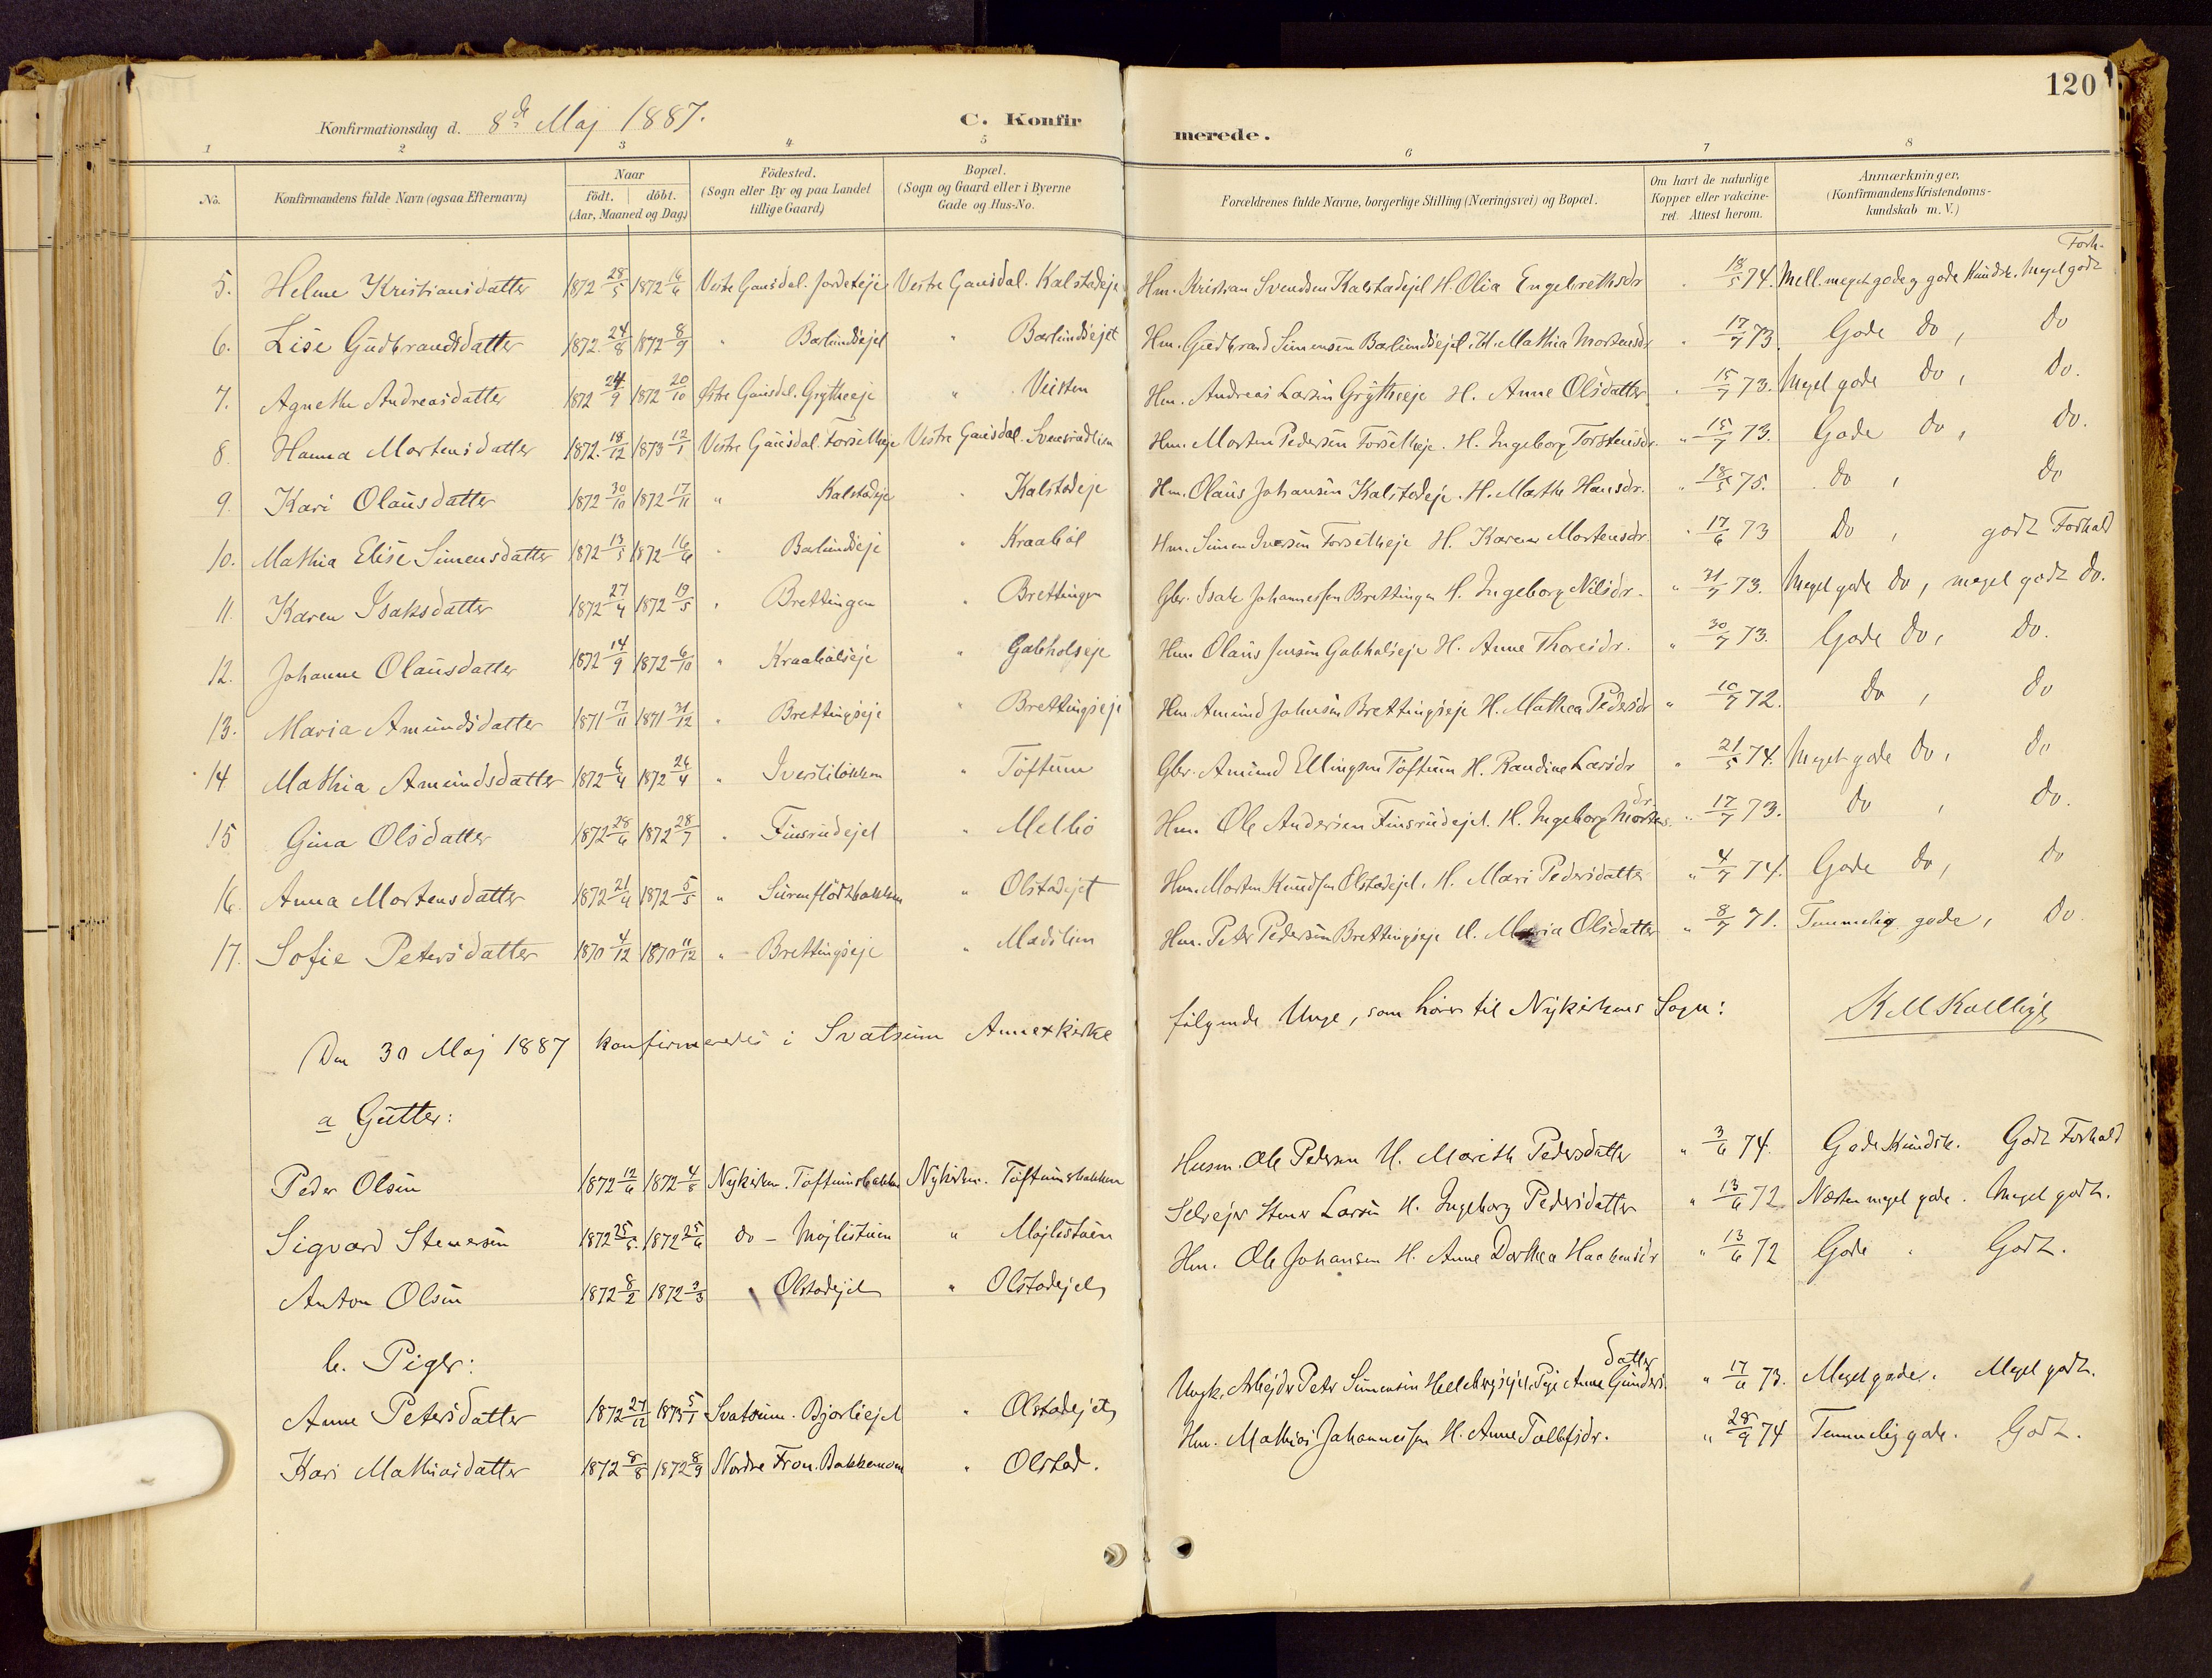 120
Konfirmationsdag d. 8de Maj 1887. C. Konfirmerede.
1 2 3 4 5 6 7 8
No. Konfirmandens fulde Navn (ogsaa Efternavn) Naar födt. döbt. (Aar, Maaned og Dag) Födested. (Sogn eller By og paa Landet tillige Gaard) Bopæl. (Sogn og Gaard eller i Byerne Gade og Hus-No. Forældrenes fulde Navne, borgerlige Stilling (Næringsvei) og Bopæl. Om havt de naturlige Kopper eller vakcineret. Attest herom. Anmærkninger. (Konfirmandens Kristendomskundskab m. V.)
5. Helene Kristiansdatter 1872 28/5 1872 16/6 Vestre Gausdal. Jordeteje Vestre Gausdal. Kalstadeje Hm. Kristian Svendsen Kalstadejet H. Olia Engebrethsdr " 18/5 74. Mell. meget gode og gode Kundsk. Meget godt Forh.
6. Lise Gudbrandsdatter 1872. 24/8 1872 8/9 " Bærlundsejet " Bærlundsejet Hm. Gudbrand Simensen Bærlundsejet. H. Mathia Mortensdr " 17/7 73. Gode do, do
7. Agnethe Andreasdatter 1872 24/9 1872 20/10 Østre Gausdal. Grytheeje " Veisten Hm. Andreas Larsen Grytheeje H. Anne Olsdatter " 15/7 73. Meget gode do, do.
8. Hanna Mortensdatter 1872. 18/12 1873 12/1 Vestre Gausdal. Forsetheje Vestre Gausdal. Svensrudlien Hm. Morten Pedersen Forsetheje. H. Ingeborg Torstensdr. " 15/7 73. Gode do, do.
9. Kari Olausdatter 1872 30/10 1872 17/11 " Kalstadeje " Kalstadeje Hm. Olaus Johansen Kalstadeje. H. Marthe Hansdr. " 18/5 75. do, do
10. Mathia Elise Simensdatter 1872 13/5 1872 16/6 " Bærlundseje " Kraabøl Hm. Simen Iversen Forsetheje H. Karen Mortensdr. " 17/6 73 do, godt Forhold
11. Karen Isaksdatter 1872 27/4 1872 19/5 " Brettingen " Brettingen Gbr. Isak Johannessen Brettingen H. Ingeborg Nilsdr. " 31/7 73. Meget gode do, meget godt do.
12. Johanne Olausdatter 1872 14/9 1872 6/10 " Kraabølseje " Gabholseje Hm. Olaus Jensen Gabholseje H. Anne Thoresdr. " 30/7 73. Gode do, do.
13. Maria Amundsdatter 1871 17/11 1871 31/12 " Brettingseje " Brettingseje Hm. Amund Johnsen Brettingseje H. Mathea Pedersdr " 10/7 72. do, do
14 Mathia Amundsdatter 1872 6/4 1872 26/4 " Iversliløkken " Töftum Gbr. Amund Ellingsen Töftum H. Randine Larsdr " 21/5 74. Meget gode do, do
15 Gina Olsdatter 1872 28/6 1872 28/7 " Finsrudejet " Melbö Hm. Ole Andersen Finsrudejet. H. Ingeborg Mortensdr " 17/7 73. do, do.
16. Anna Mortensdatter 1872 21/4 1872 5/5 " Surenflödtbakken " Olstadejet Hm. Morten Knudsen Olstadejet. H. Mari Pedersdatter " 4/7 74. Gode do, do
17. Sofie Petersdatter 1870 4/12 1870 11/12 " – Brettingseje " Madslien Hm. Peter Pedersen Brettingseje H. Maria Olsdatter " 8/7 71. Temmelig gode, do.
Den 30 Maj 1887 konfirmeredes i Svatsum Annexkirke følgende Unge, som hører til Nykirkens Sogn:
a Gutter:
Peder Olsen 1872 12/6 1872 4/8 Nykirken. Töftumsbakken Nykirken. Töftumsbakken Husm. Ole Pedersen H. Marithe Pedersdatter " 3/6 74. Gode Kundsk. Godt Forhold
Sigvard Stenersen 1872 25/5. 1872 25/6 do – Mojlistuen " Mojlistuen Selvejer Stener Larsen H. Ingeborg Pedersdatter " 13/6 72 Næsten meget gode. Meget godt.
Anton Olsen 1872 8/2 1872 3/3 Olstadejet " Olstadejet Hm. Ole Johansen H. Anne Dorthea Haakensdr " 13/6 72 Gode. Godt.
b. Piger:
Anne Petersdatter 1872 27/12 1873 5/1 Svatsum. Bjorliejet " Olstadejet Ungk. Arbejder Peter Simensen Hellebergsejet. Pige Anne Gundersdatter " 17/6 73. Meget gode. Meget godt.
Kari Mathiasdatter 1872 8/8 1872 8/9 Nordre Fron. Bakkemoen " Olstad. Hm. Mathias Johannessen H. Anne Tollefsdr. " 28/9 74 Temmelig gode. Godt.